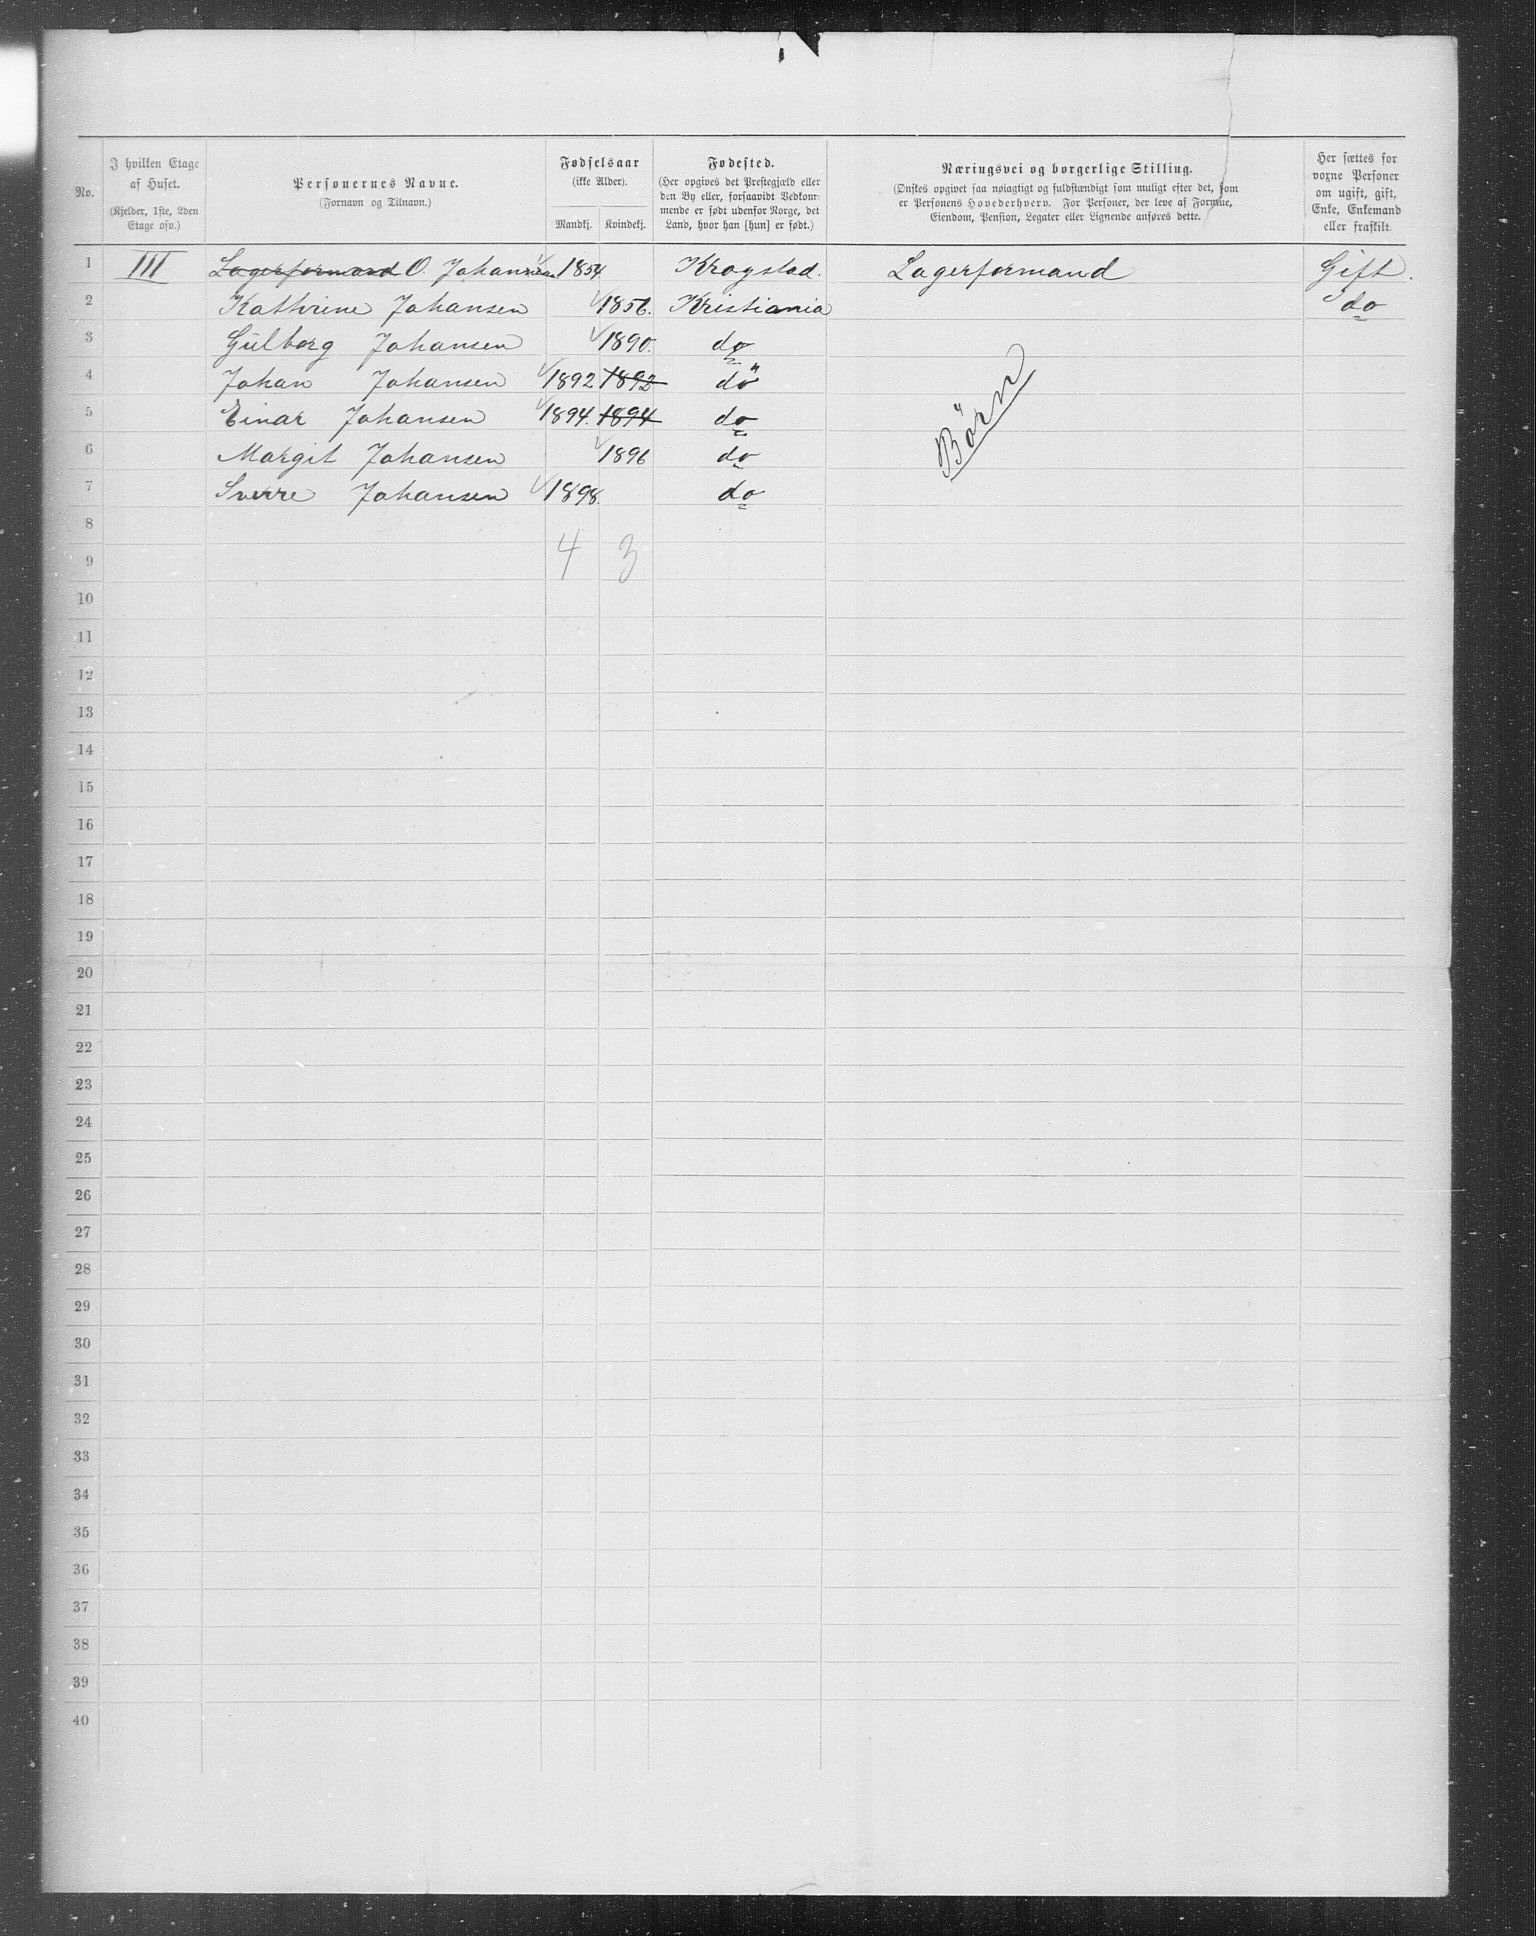 No.
I hvilken Etage af Huset.
(Kjelder, 1ste, 2den Etage osv.)
Personernes Navne.
(Fornavn og Tilnavn.)
Fødselsaar
(ikke Alder).
Mandkj. Kvindekj.
Fødested.
(Her opgives det Prestegjæld eller
den By eller, forsaavidt Vedkom-
mende er født udenfor Norge, det
Land, hvor han [hun] er født.)
Næringsvei og borgerlige Stilling.
(Ønskes opgivet saa nøiagtigt og fuldstændigt som muligt efter det, som
er Personens Hovederhverv. For Personer, der leve af Formue,
Eiendom, Pension, Legater eller Lignende anføres dette.
Her sættes for
voxne Personer
om ugift, gift,
Enke, Enkemand
eller fraskilt.
1 III Lagerformand O. Johansen 1854. Krogstad. Lagerformand Gift.
2 Kathrine Johansen 1856. Kristiania do
3 Gulborg Johansen 1890. do
4 Johan Johansen 1892 1892 do
5 Einar Johansen 1894. 1894 do
6 Margit Johansen 1896 do
7 Sverre Johansen 1898. do
Börn
8
4 3
9
10
11
12
13
14
15
16
17
18
19
20
21
22
23
24
25
26
27
28
29
30
31
32
33
34
35
36
37
38
39
40